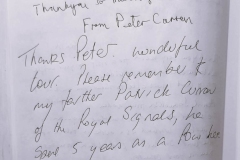 Thankyou
From Peter Curran
Thanks Peter. wonderful
tour. Please remember
my farther Patrick Curran
of the Royal Signals, he
5 years as a